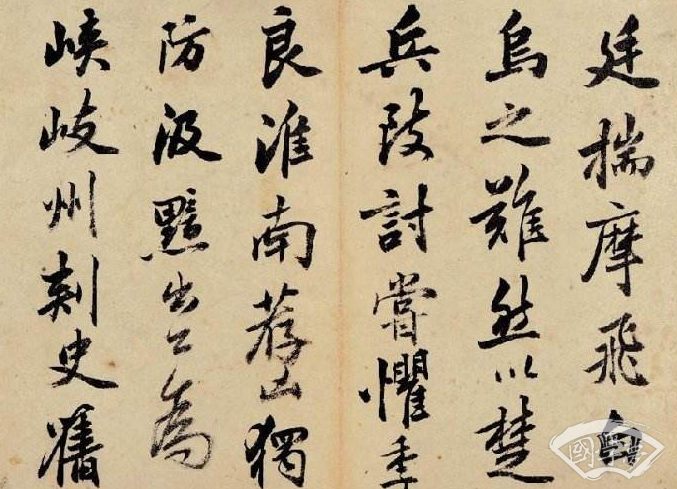 廷揣摩飛
烏之難然以楚
兵討嘗懼季
良淮南荐山獨
防汲黯出公為
峽岐州刺史舊